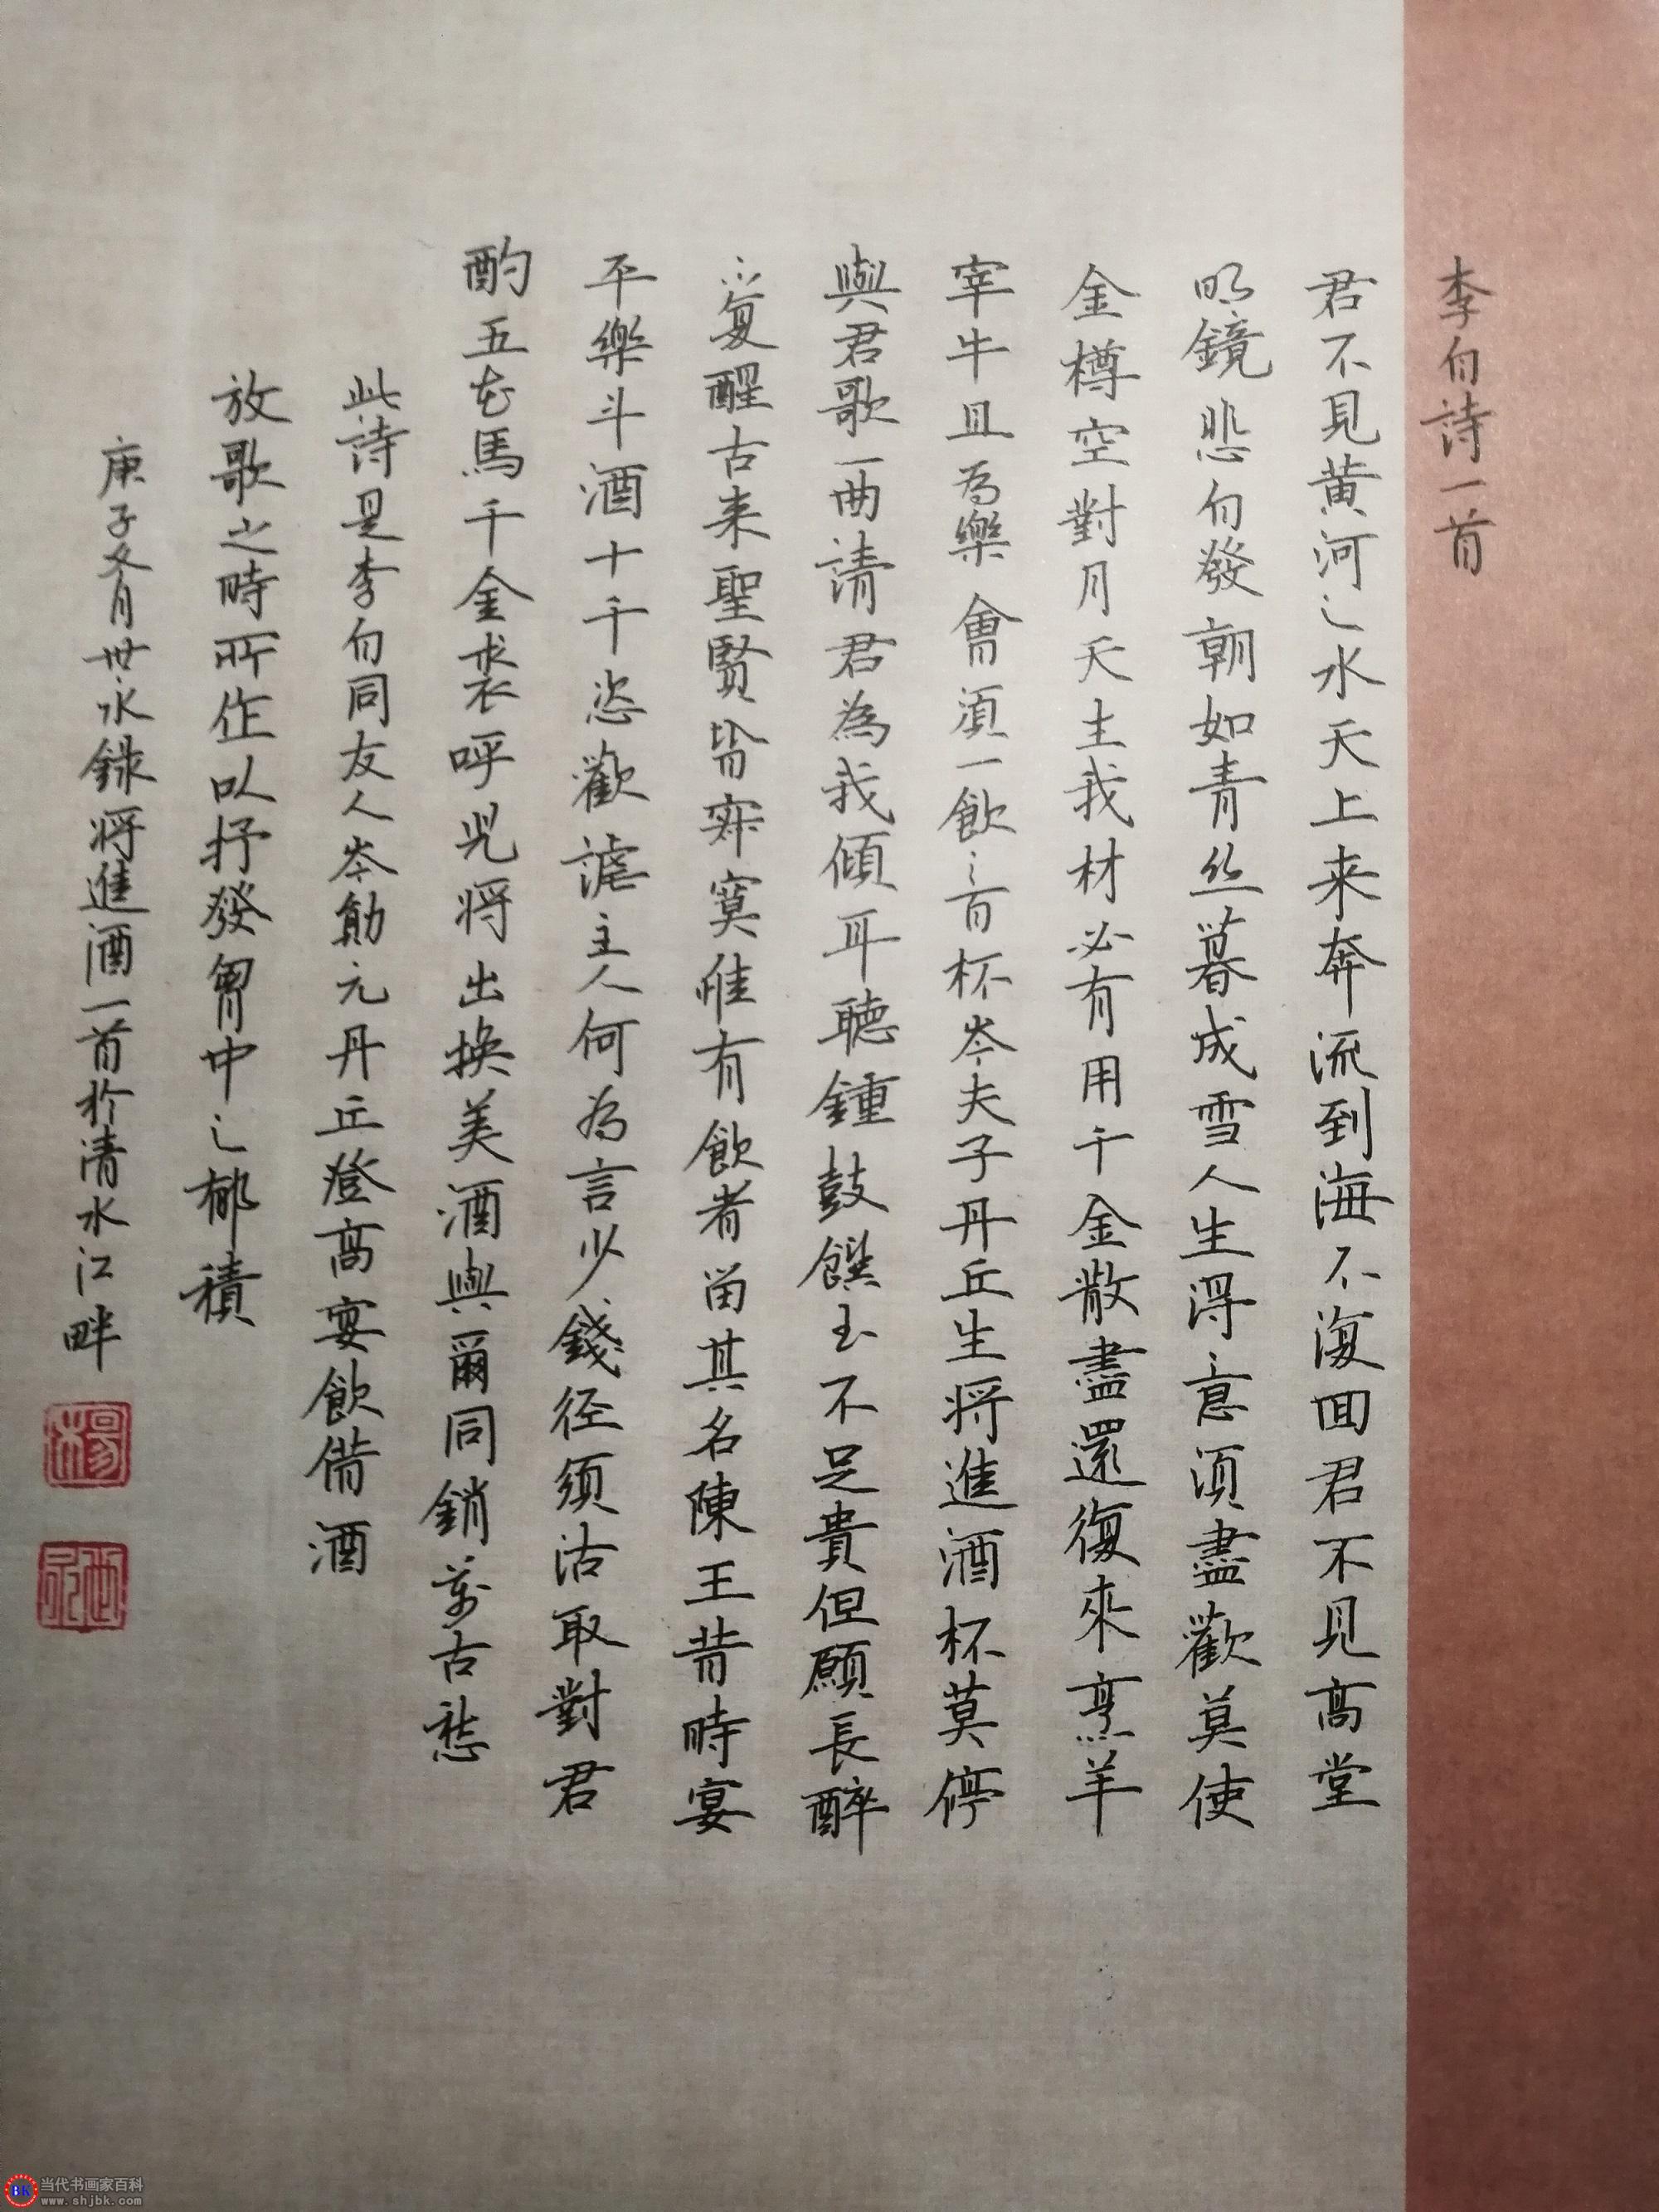 李白詩一首
君不見黄河之水天上来奔流到海不復回君不見高堂
明鏡悲白發朝如青丝暮成雪人生得意須盡歡莫使
金樽空對月天生我材必有用千金散盡還復來烹羊
宰牛且為樂會須一飲三百杯岑夫子丹丘生将進酒杯莫停
與君歌一曲請君為我傾耳聽鍾鼓饌玉不足貴但願長醉
不复醒古来聖賢皆寂寞惟有飲者留其名陳王昔時宴
平樂斗酒十千恣歡謔主人何為言少錢径须沽取對君
酌五花馬千金裘呼児将出換美酒與爾同銷萬古愁
此詩是李白同友人岑勛元丹丘登高宴飲借酒
放歌之時所作以抒發胷中之郁積
庚子冬月世永錄将進酒一首於清水江畔
楊
世永
当代书画家百科
www.shjbk.com
BK